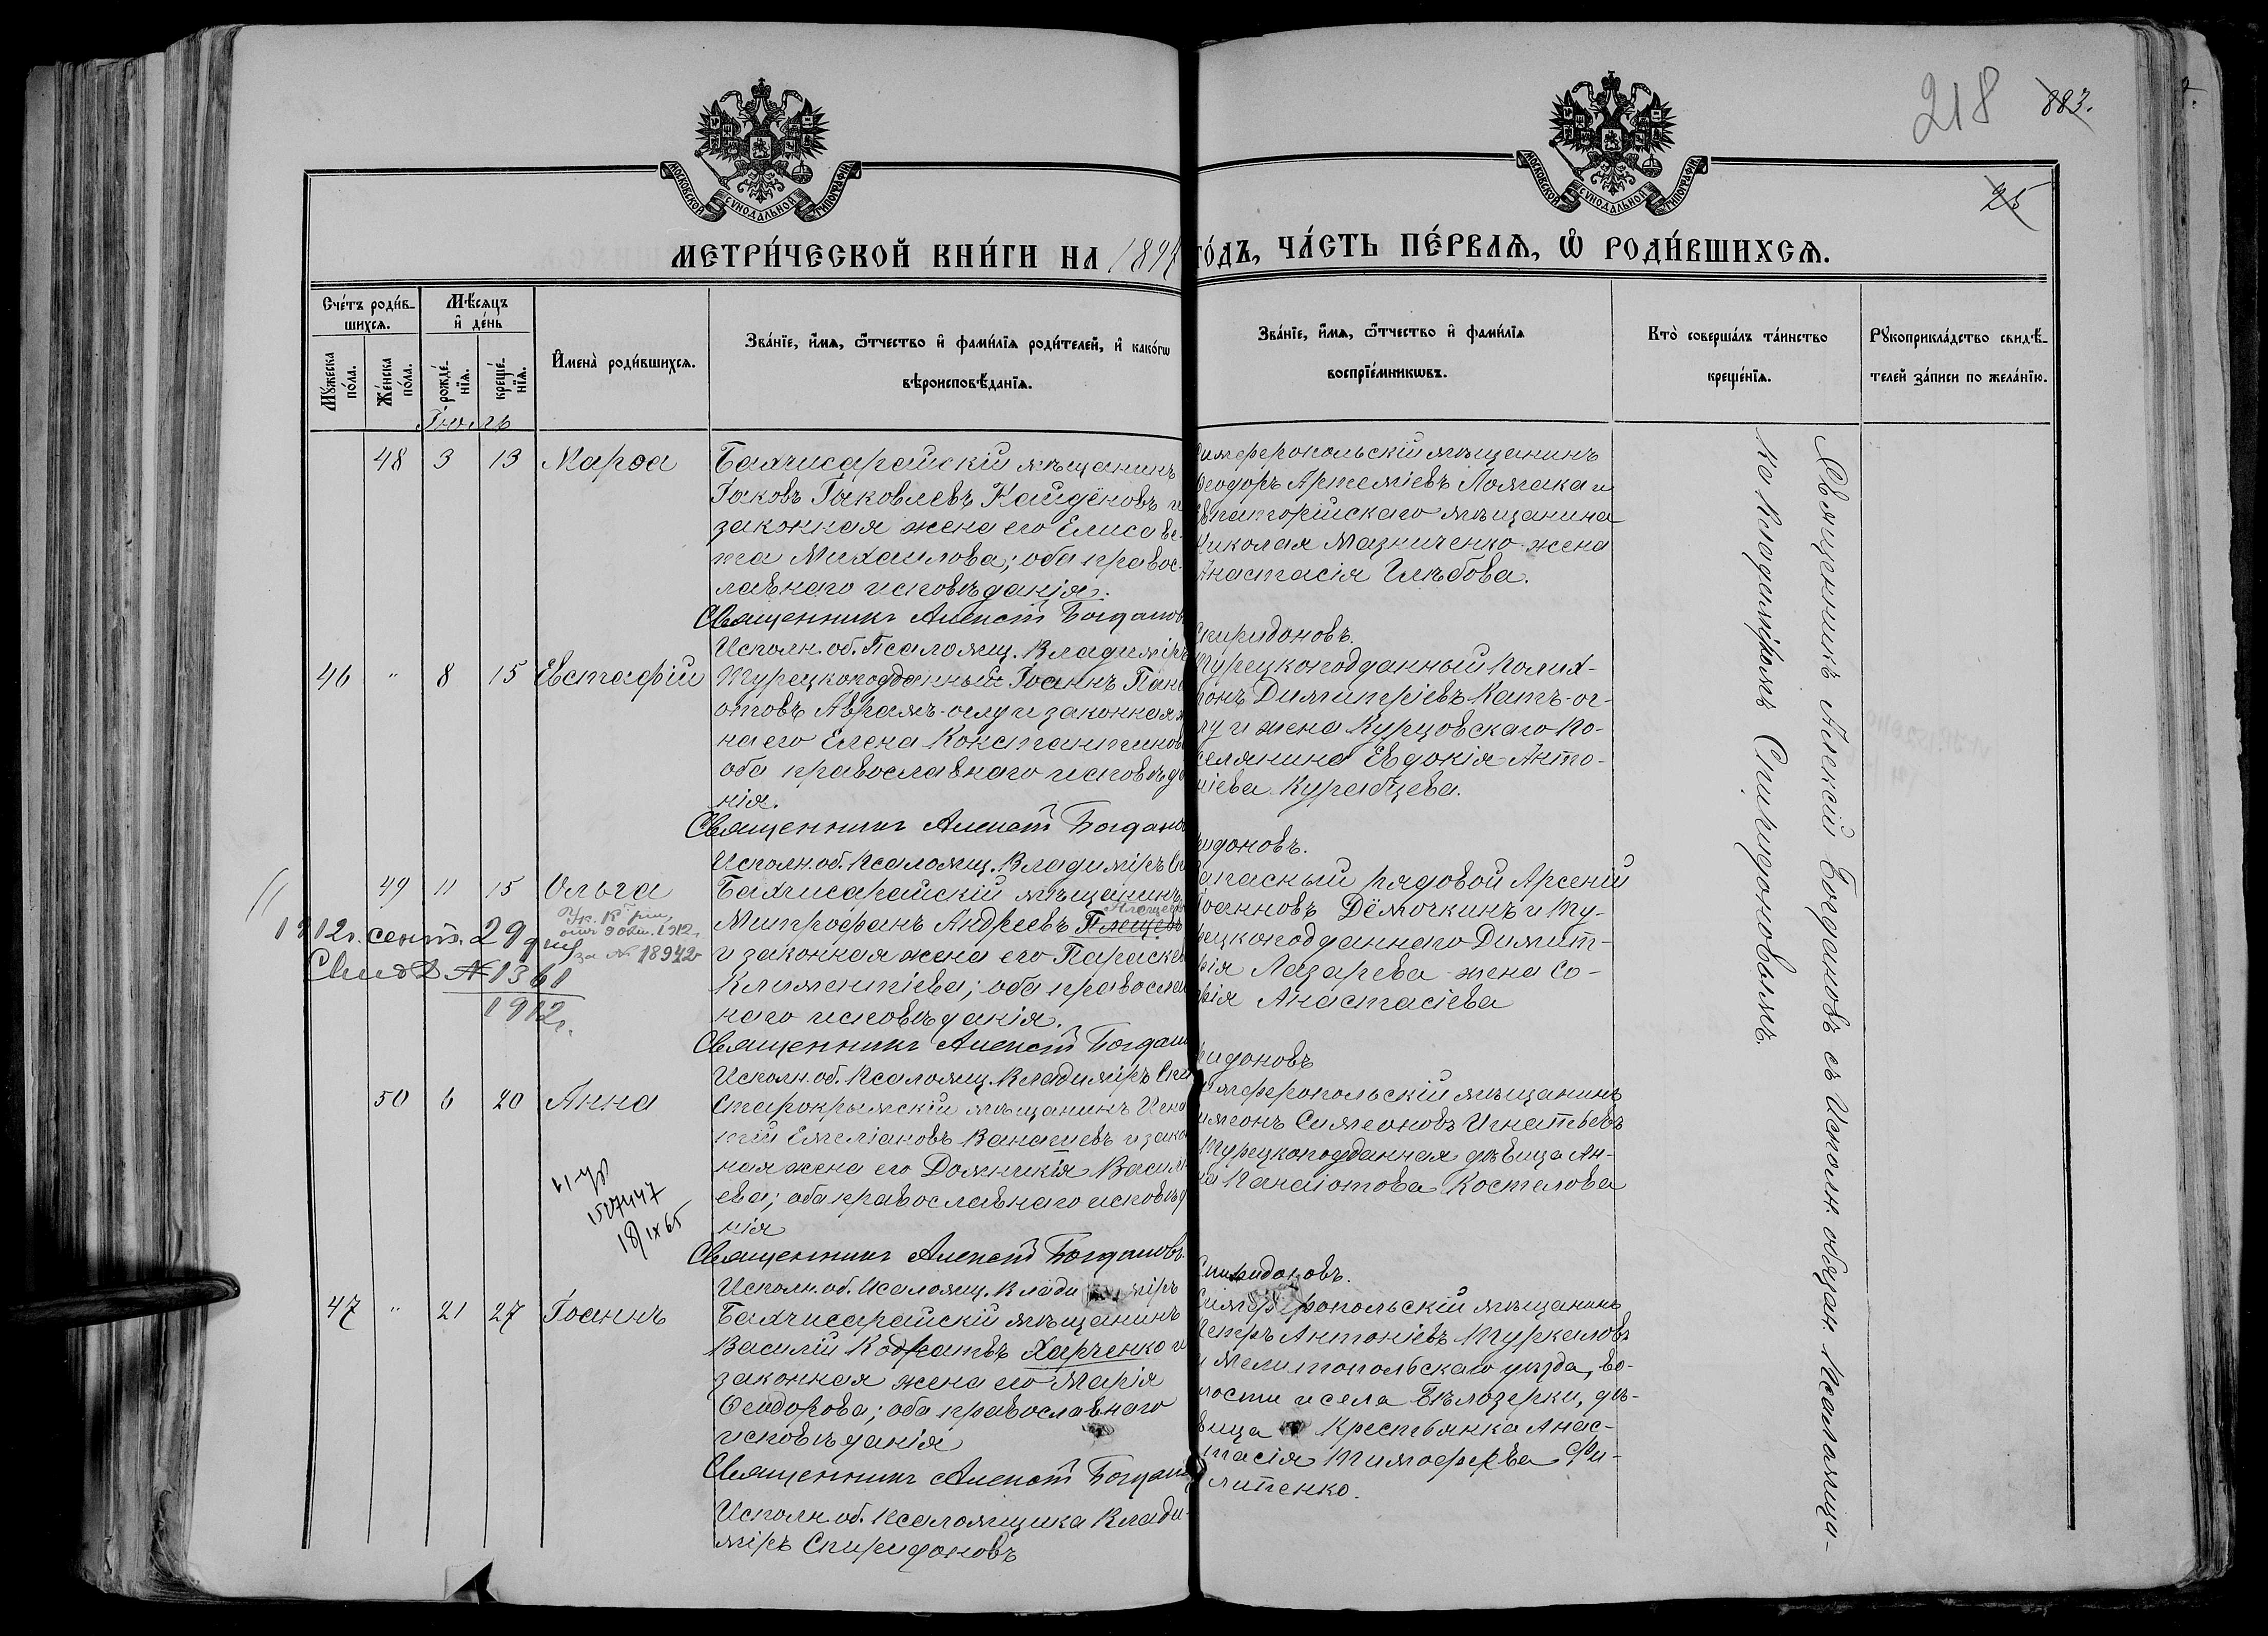 218 883.
25
МОСКОВСКОЙ СѴНОДАЛЬНОЙ ТИПОГРАФІИ
МОСКОВСКОЙ СѴНОДАЛЬНОЙ ТИПОГРАФІИ
МЕТРИ́ЧЕСКОЙ КНИ́ГИ НА 189
ГО́ДЪ, ЧА́СТЬ ПЕ́РВАѦ, Ѽ РОДИ́ВШИХСѦ.
Сче́тъ роди́в-
шихсѧ.
Мꙋ́жеска по́ла.
Же́нска по́ла.
Мѣ́сѧцъ
и҆ де́нь
рожде́-
нїѧ.
креще́-
нїѧ.
И҆мена̀ роди́вшихсѧ.
Зва́нїе, и҆́мѧ, ѻ҆́тчество и҆ фами́лїѧ роди́телей, и҆ како́гѡ
вѣроисповѣ́данїѧ.
Зва́нїе, и҆́мѧ, ѻ҆́тчество и҆ фами́лїѧ
воспрїе́мникѡвъ.
Кто̀ соверша́лъ та́инство
креще́нїѧ.
Рꙋкоприкла́дство свидѣ́-
телей за́писи по жела́нїю.
Іюль
48 3 13 Марѳа
Бахчисарайскій мѣщанинъ
Іаковъ Іаковлевъ Найдёновъ и
законная жена его Елисаве-
та Михаилова; оба правос-
лавнаго исповѣданія.
Священникъ Алексій Богданов
Исполн. об. Псаломщ. Владиміръ
Симферопольскій мѣщанинъ
Ѳеодоръ Артеміевъ Ломака и
Евпаторійскаго мѣщанина
Николая Мазниченко жена
Анастасія Глѣбова.
Спиридоновъ.
46 " 8 15 Евстафій
Турецкоподданный Іоаннъ Пана
отовъ Аврамъ-оглу и законная
на его Елена Константинов
оба православнаго исповѣда
нія.
Священникъ Алексій Богдано
Исполн. об. Псаломщ. Владиміръ Сп
Турецкоподданный Полих-
ронъ Димитріевъ Катъ-ог-
лу и жена Курцовскаго по-
селянина Евдокія Анто-
ніева Курабцева.
ридоновъ.
49 11 15 Ольга
Бахчисарайскій мѣщанинъ
Митрофанъ Андреевъ Плещевъ
и законная жена его Параскев
Климентіева; оба правосла
наго исповѣданія.
Священникъ Алексій Богдан
Исполн. об. Псаломщ. Владиміръ Спи
Запасный рядовой Арсеній
Іоанновъ Дёмочкинъ и ту-
рецкоподданнаго Димит-
рія Лазарева жена Со-
фія Анастасіева
ридоновъ
1912г. сент. 29 дня
за № 18942
Свид. № 1361
1912г.
50 6 20 Анна
Старокрымскій мѣщанинъ Игна
тій Емеліановъ Ванагиевъ и зако
ная жена его Домникія Васил
ева; оба православнаго исповѣд
нія
Священникъ Алексій Богдановъ
Исполн. об. Псаломщ. Владиміръ
Симферопольскій мѣщанинъ
Симеонъ Симеоновъ Игнатьевъ
Турецкоподданная дѣвица Ан-
на Панаіотова Костелова
Спиридоновъ.
1507447
18/IX 65
47 " 21 27 Іоаннъ
Бахчисарайскій мѣщанинъ
Василій Кодратьевъ Харченко и
законная жена его Марія
Ѳеодорова; оба православнаго
исповѣданія
Священникъ Алексій Богдан
Исполн. об. Псаломщика Влади-
міръ Спиридоновъ
Симферопольскій мѣщанинъ
Петръ Антоніевъ Туркаловъ
и Мелитопольскаго уѣзда, во-
лости и села Бѣлозерки, дѣ-
вица Крестьянка Анас-
тасія Тимофеева Фи-
липенко.
Священникъ Алексій Богдановъ съ Исполн. обязан. Псаломщи-
ка Владиміромъ Спиридоновымъ.